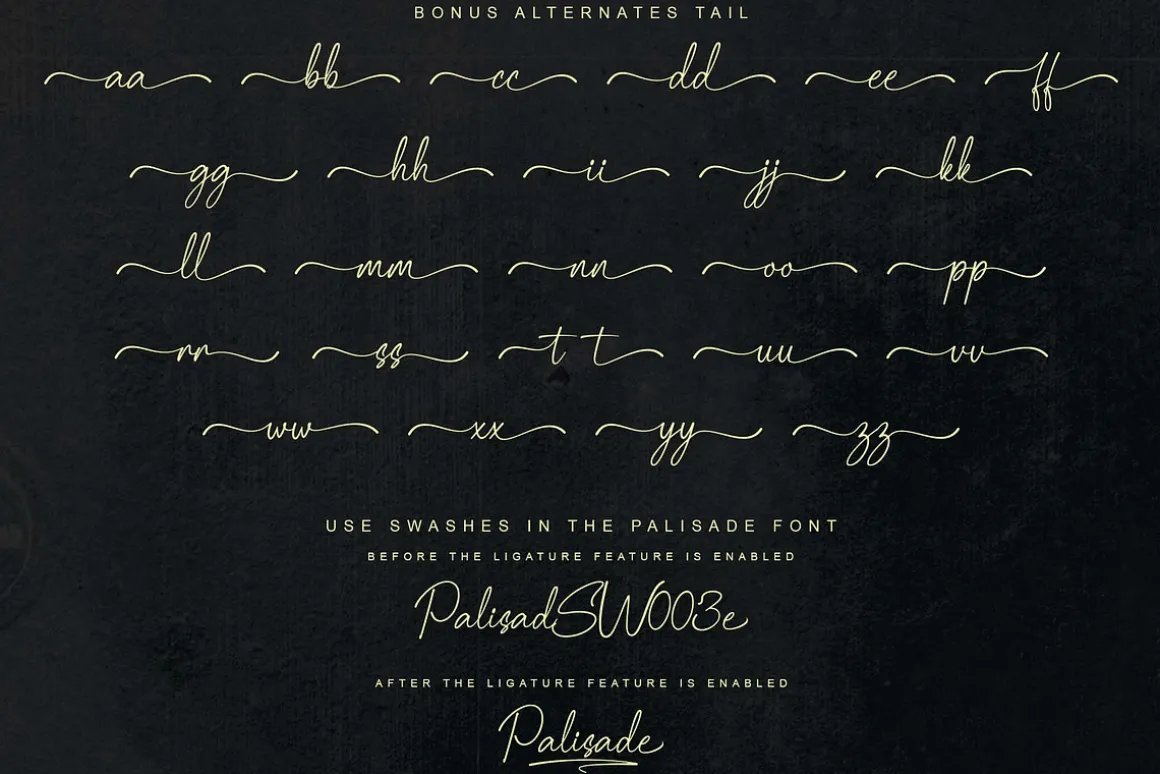 BONUS ALTERNATES TAIL
aa bb cc dd ee ff
gg hh ii jj kk
ll mm nn oo pp
rr ss tt uu vv
ww xx yy zz
USE SWASHES IN THE PALISADE FONT
BEFORE THE LIGATURE FEATURE IS ENABLED
PalisadSW003e
AFTER THE LIGATURE FEATURE IS ENABLED
Palisade